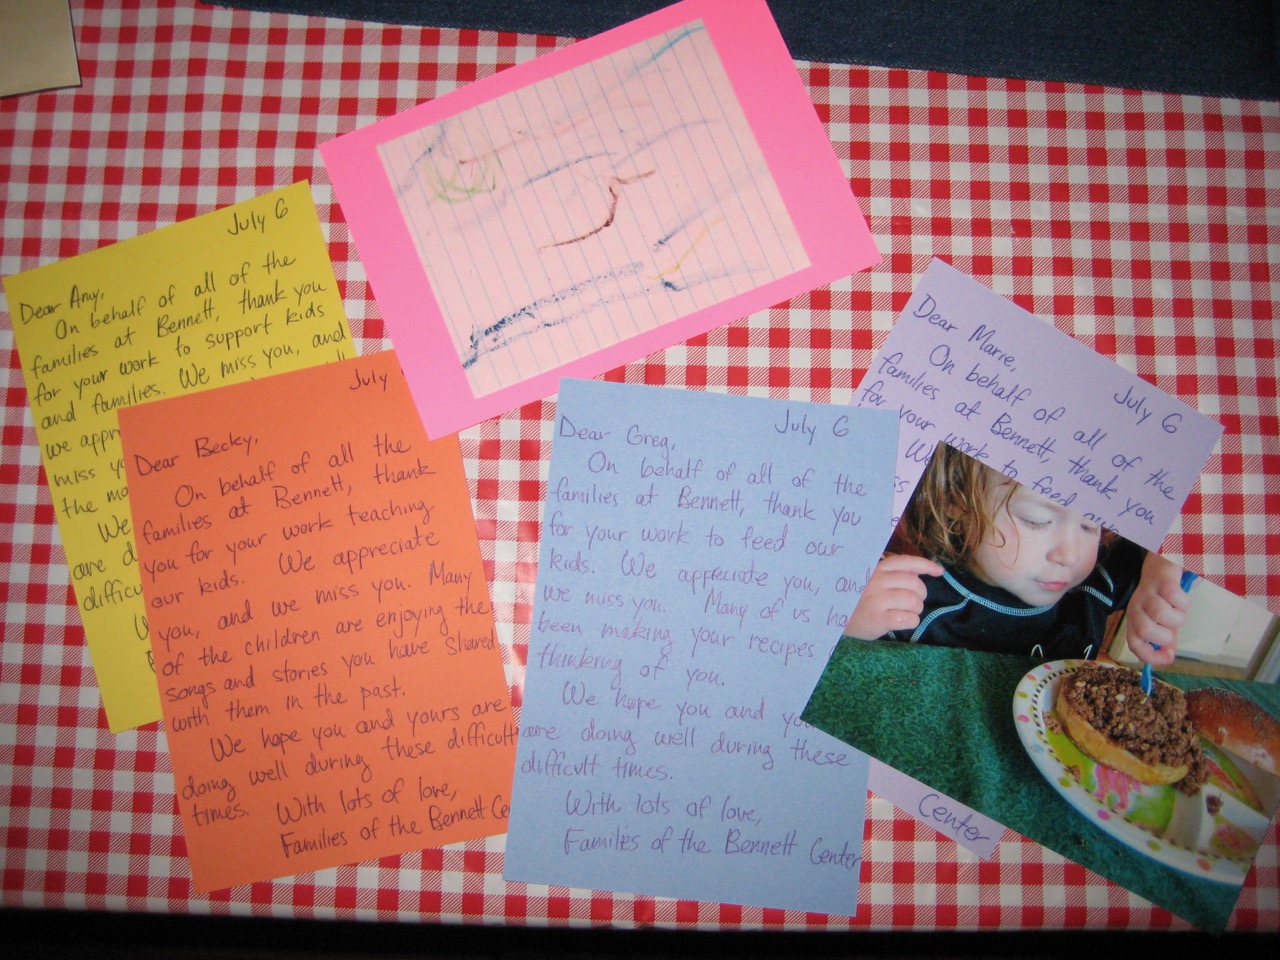 July 6
Dear Amy,
On behalf of all of the
families at Bennett, thank you
for your work to support kids
and families. We miss you, and
we appr
miss yo
the mo
We
are d
difficu
July
Dear Becky,
On behalf of all the
families at Bennett, thank
you for your work teaching
our kids. We appreciate
you, and we miss you. Many
of the children are enjoying the
songs and stories you have shared
with them in the past.
We hope you and yours are
doing well during these difficult
times. With lots of love,
Families of the Bennett Ce
July 6
Dear Greg,
On behalf of all of the
families at Bennett, thank you
for your work to feed our
kids. We appreciate you, and
we miss you. Many of us ha
been making your recipes
thinking of you.
We hope you and yo
are doing well during these
difficult times.
With lots of love,
Families of the Bennett Center
July 6
Dear Marie,
On behalf of all of the
families at Bennett, thank you
for your work to feed our
Center